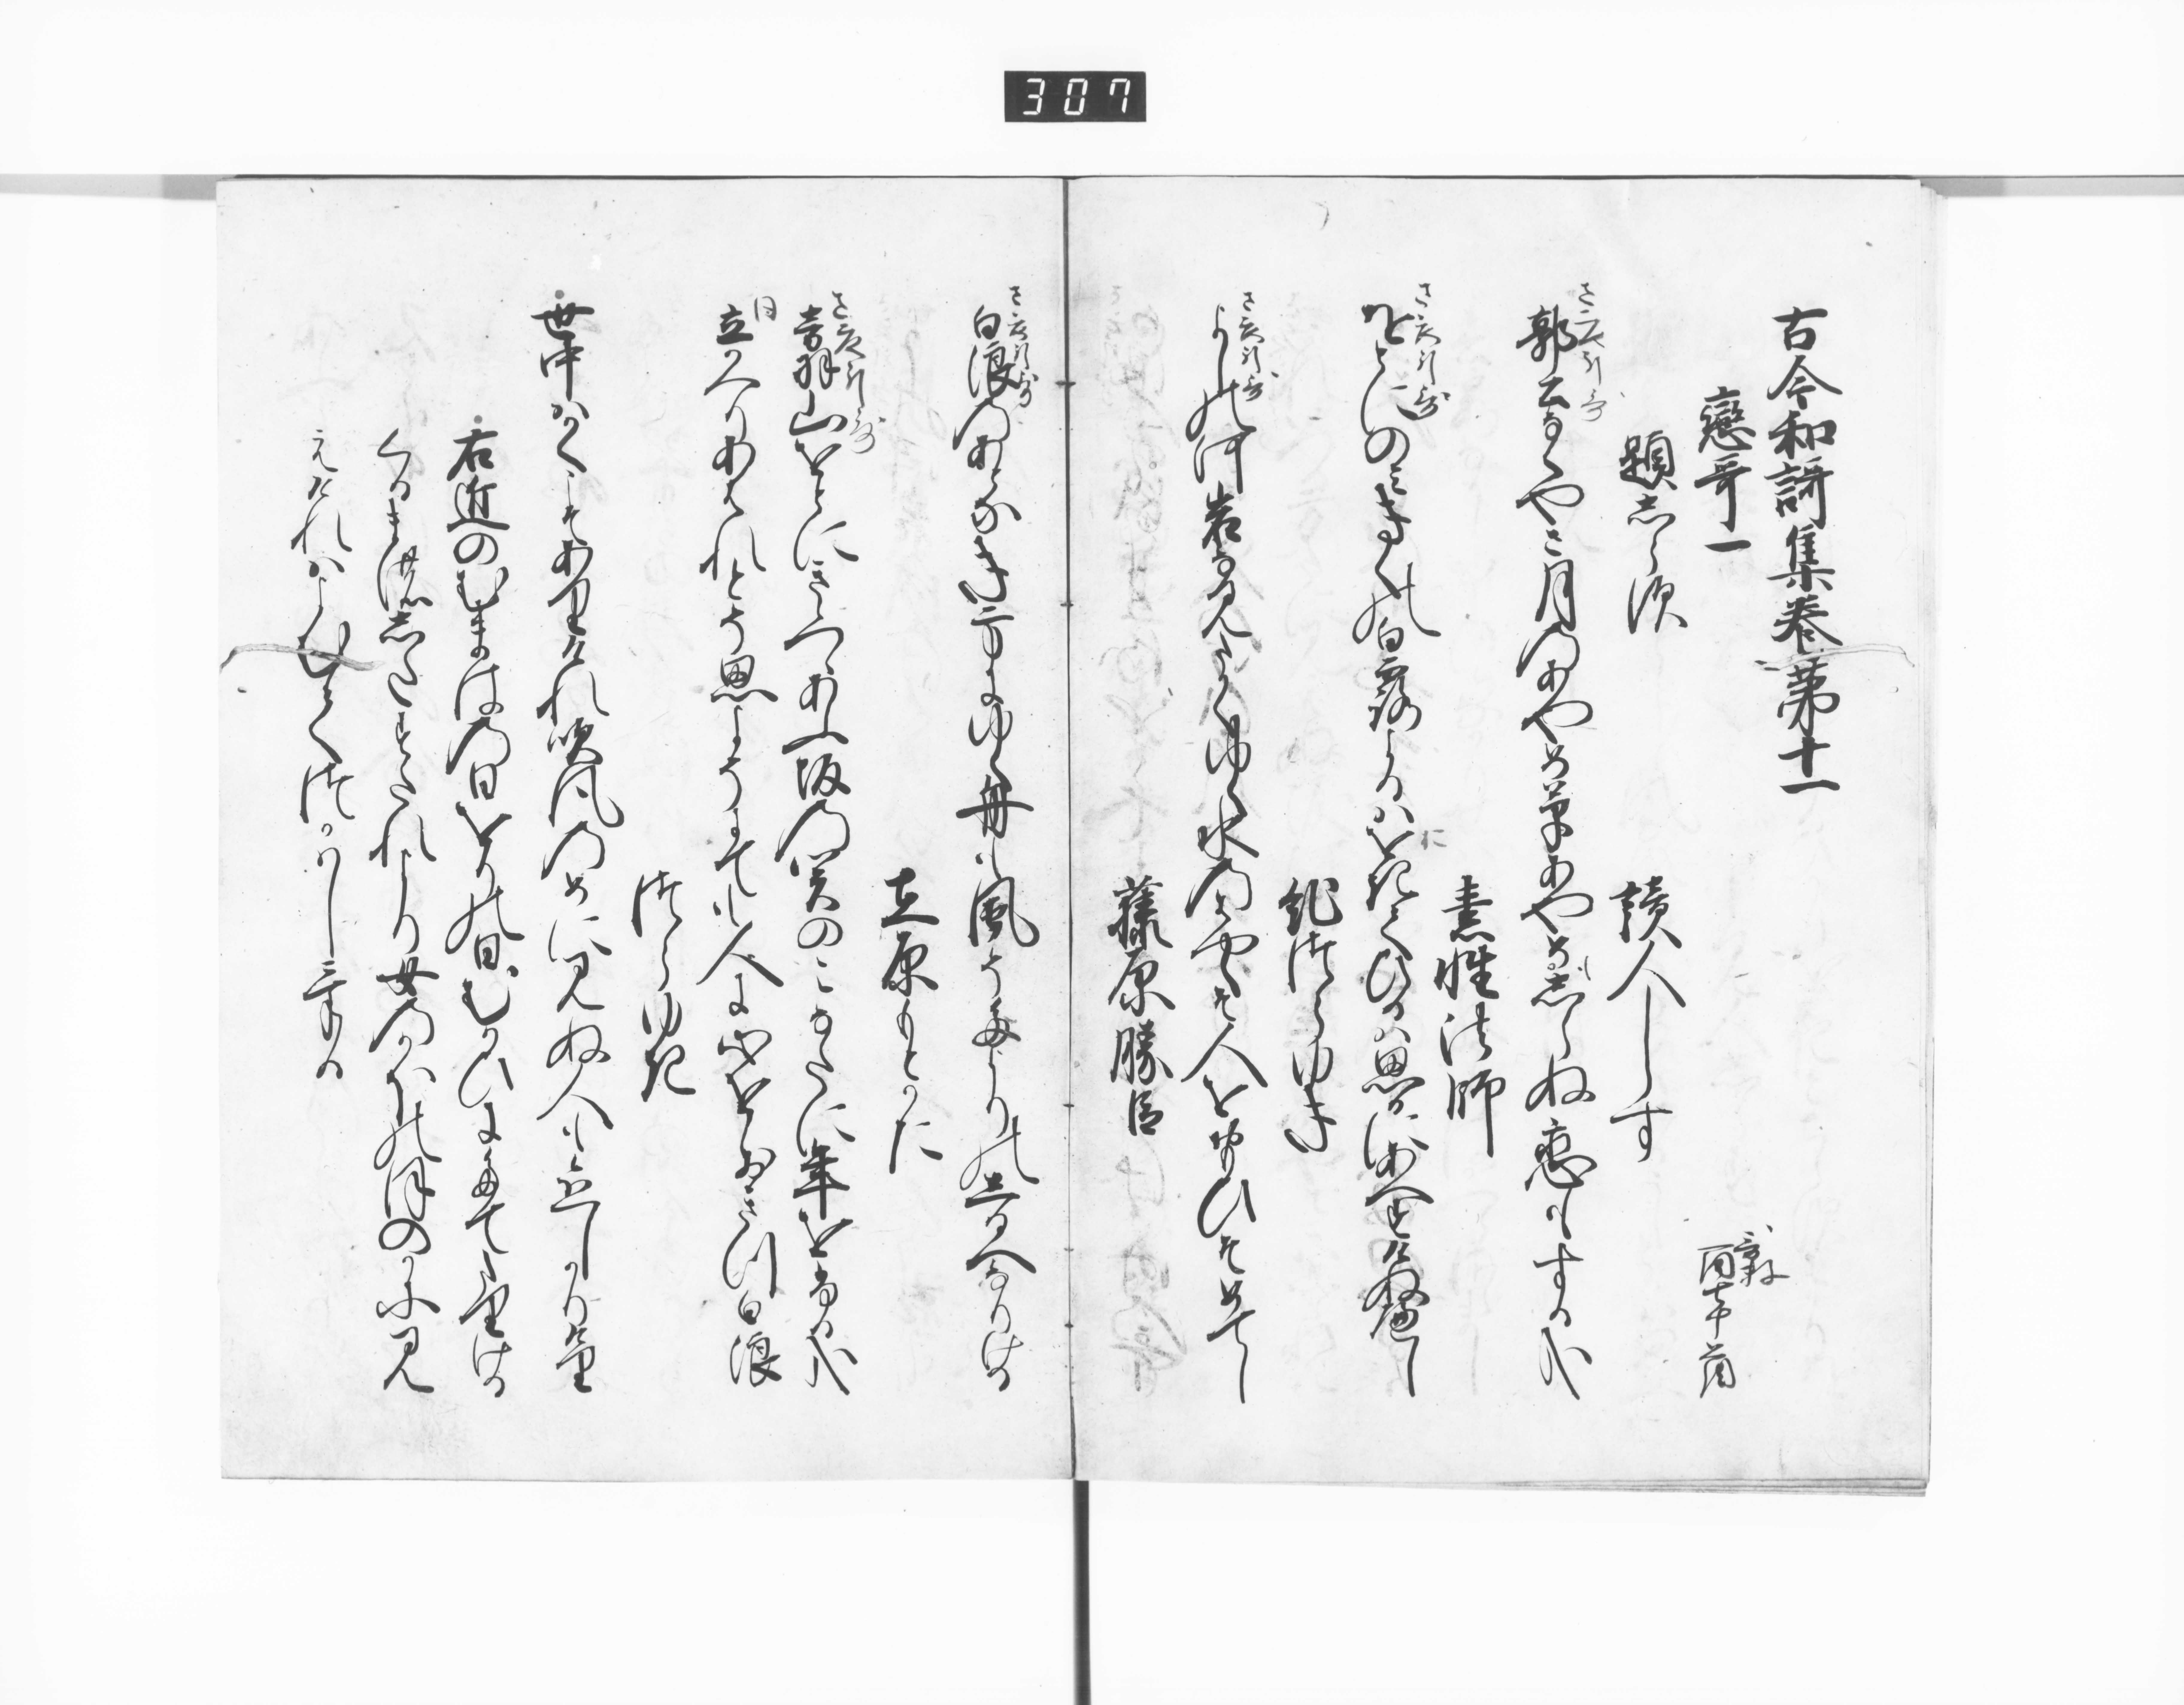 307
古今和謌集巻第十一
戀哥一
題志らす
讀人しらす
郭公なくや五月のあやめ草あやめも志らぬ恋もするかな
素性法師
をとにのみきくの白露よるはをきてひるは思にあへすけぬへし
に
紀つらゆき
よしの河岩なみたかくゆく水のはやくそ人を思ひそめてし
藤原勝臣
白浪のあとなき方にゆく舟も風そたよりのしるへなりける
在原もとかた
音羽山をとにきゝつゝあふ坂の関のこなたに年をふるかな
立かへりあはれとそ思よそにても人に心をおきつ白浪
同
つらゆき
世中はかくこそありけれ吹風のめに見ぬ人も恋しかりけり
右近のむまはの日をりの日むかひにたてたりける
くるまの志たすたれより女のかほのほのかに見
えけれはよむてつかはしける